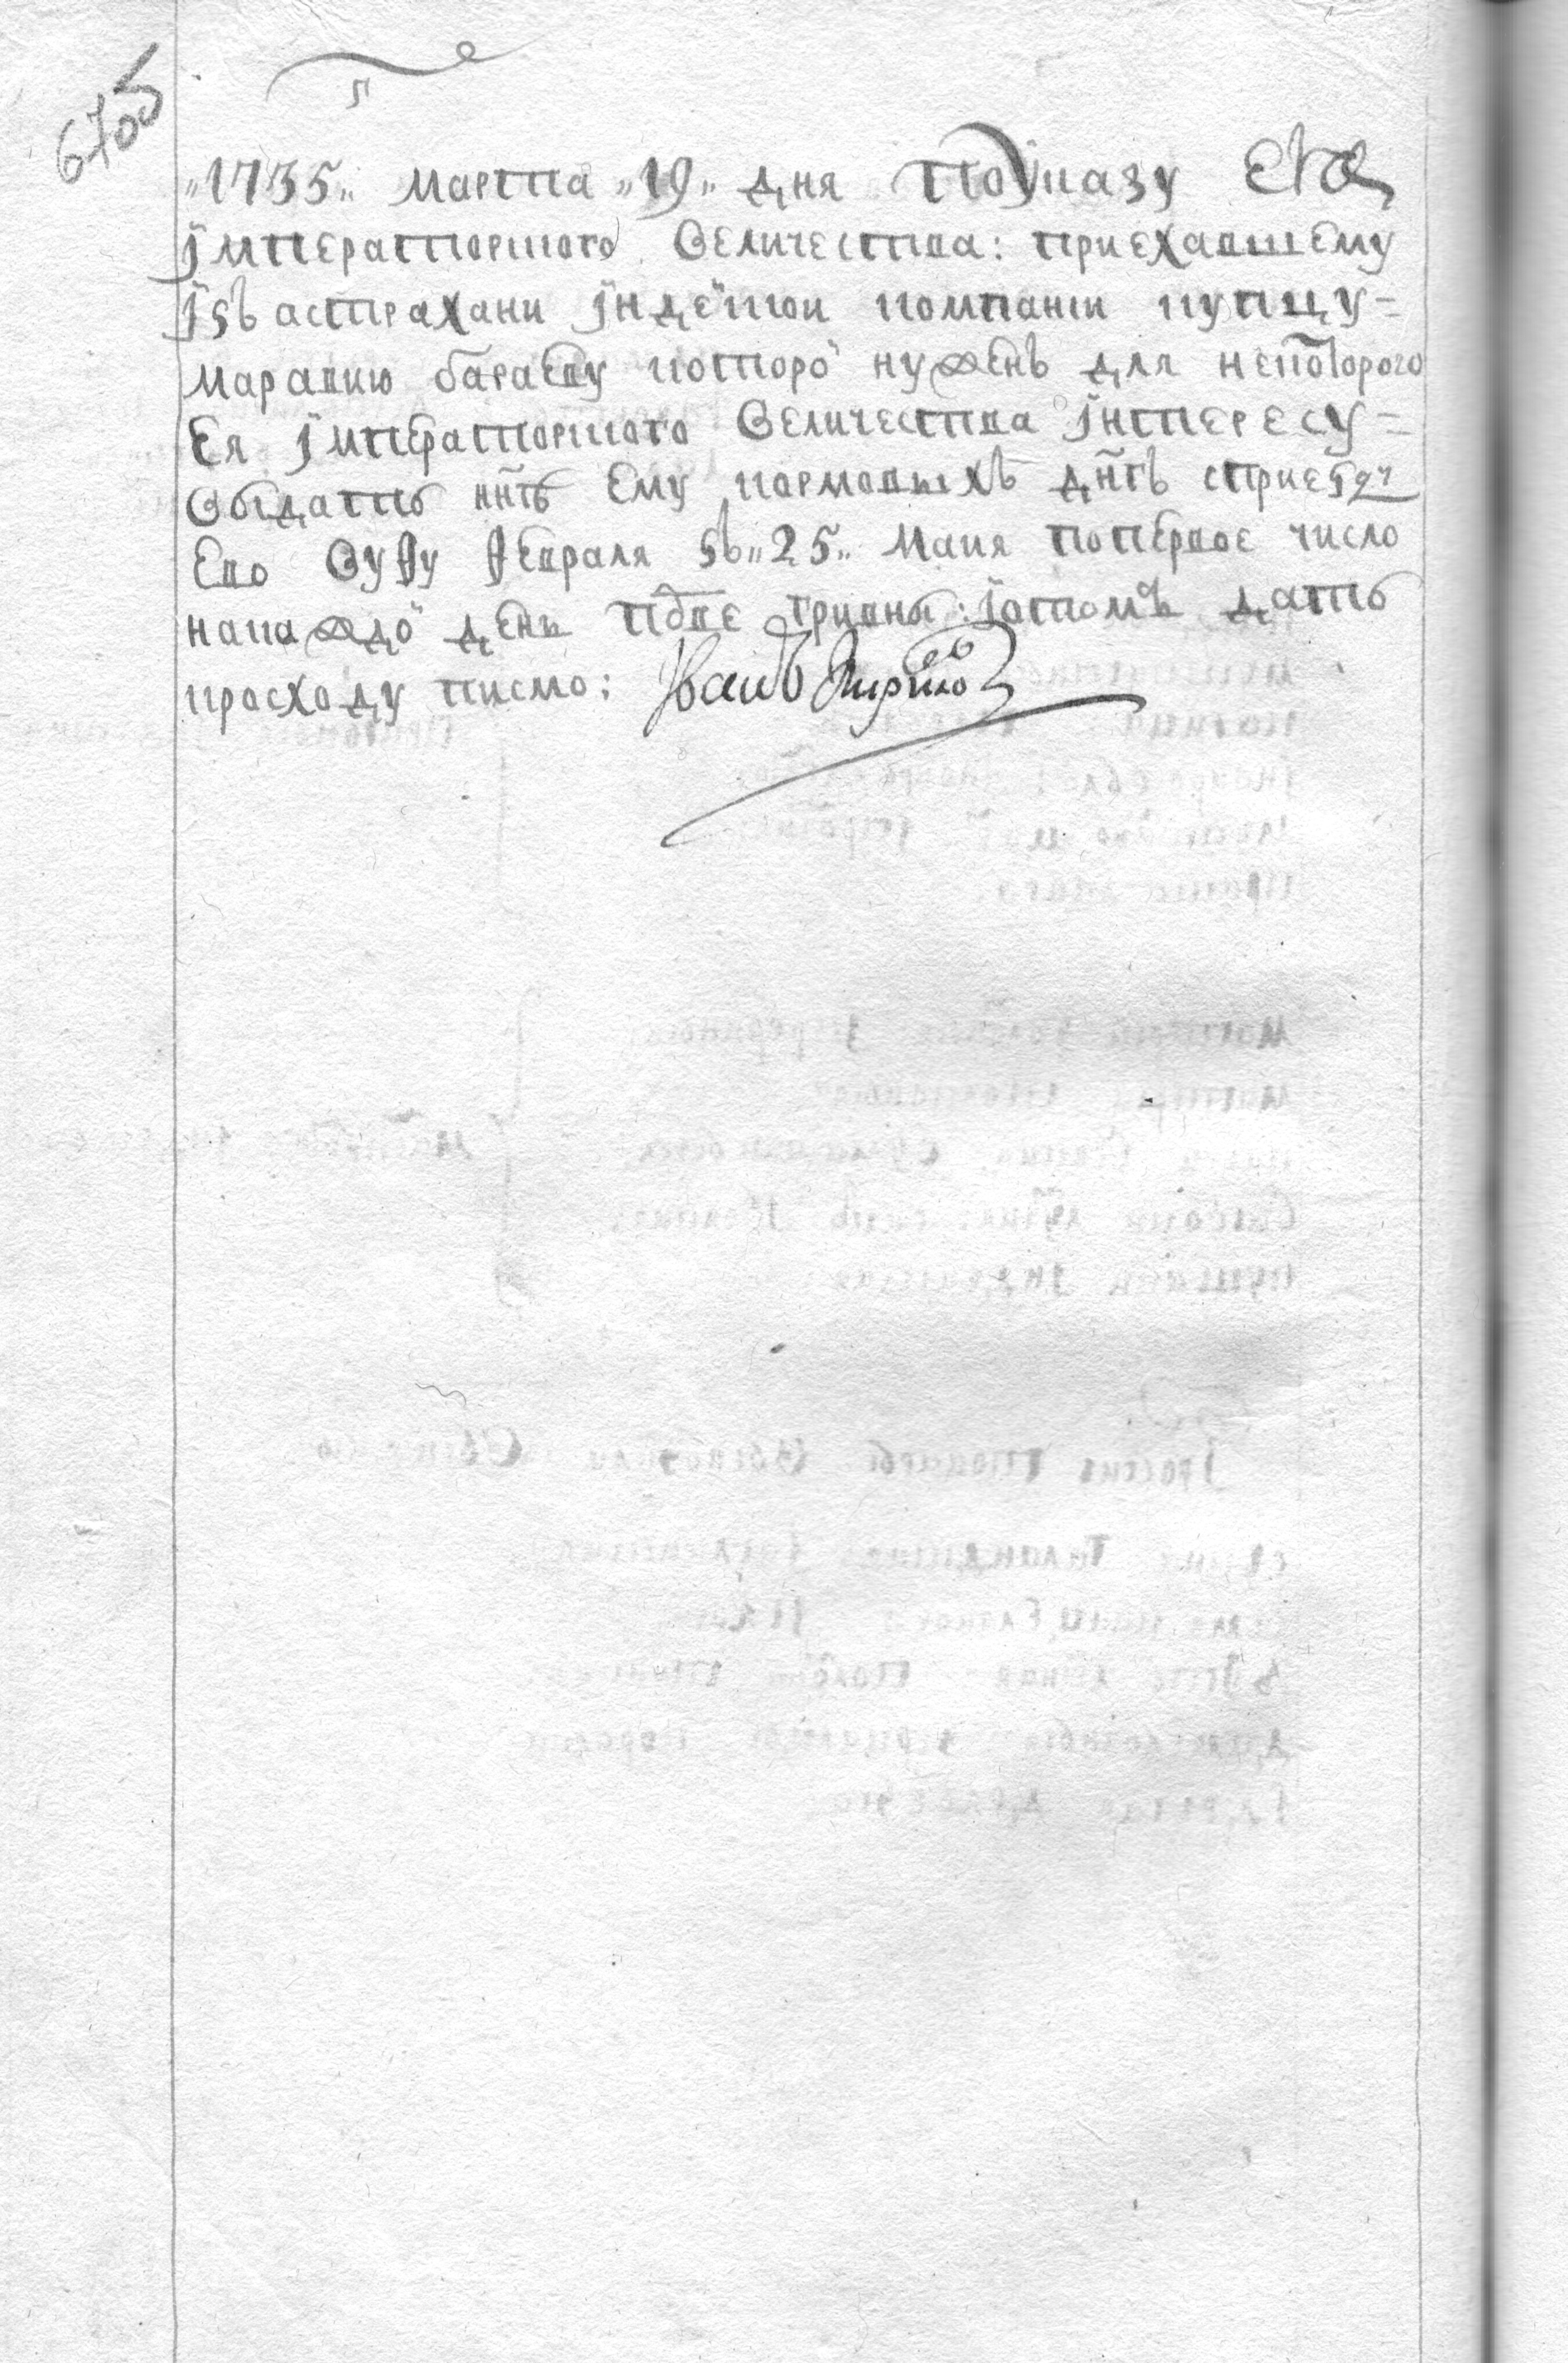 6705
п
"1735" марта "19" дня по указу ЕЯ
Імператорского Величества: приехавшему
ізъ астрахани індеской компани купцу=
марацкю бараеву которо нуженъ для некоторого
Ея Імператорского Величества інтересу=
Выдать ннѣ ему кормовыхъ днгъ сприезду
Ево Вуфу февраля зъ "25" Маия поперьвое число
накаждо день подве гривны: іотомъ дать
красходу писмо: Іванъ Кирилов